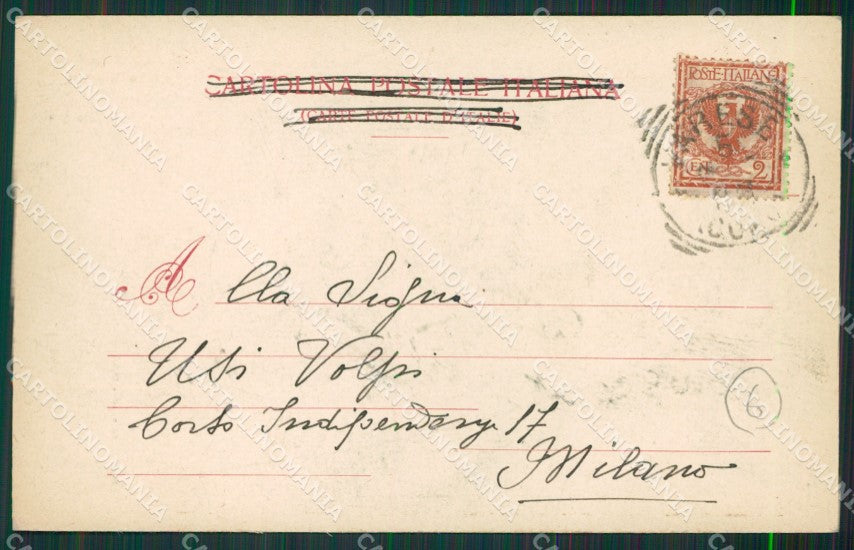 CARTOLINA POSTALE ITALIANA
(CARTE POSTALE D'ITALIE)
POSTE·ITALIANE
CENT. 2
VARESE
A lla Sigra
Usi Volpi
Corso Indipendenza 17
Milano
6
CARTOLINOMANIA